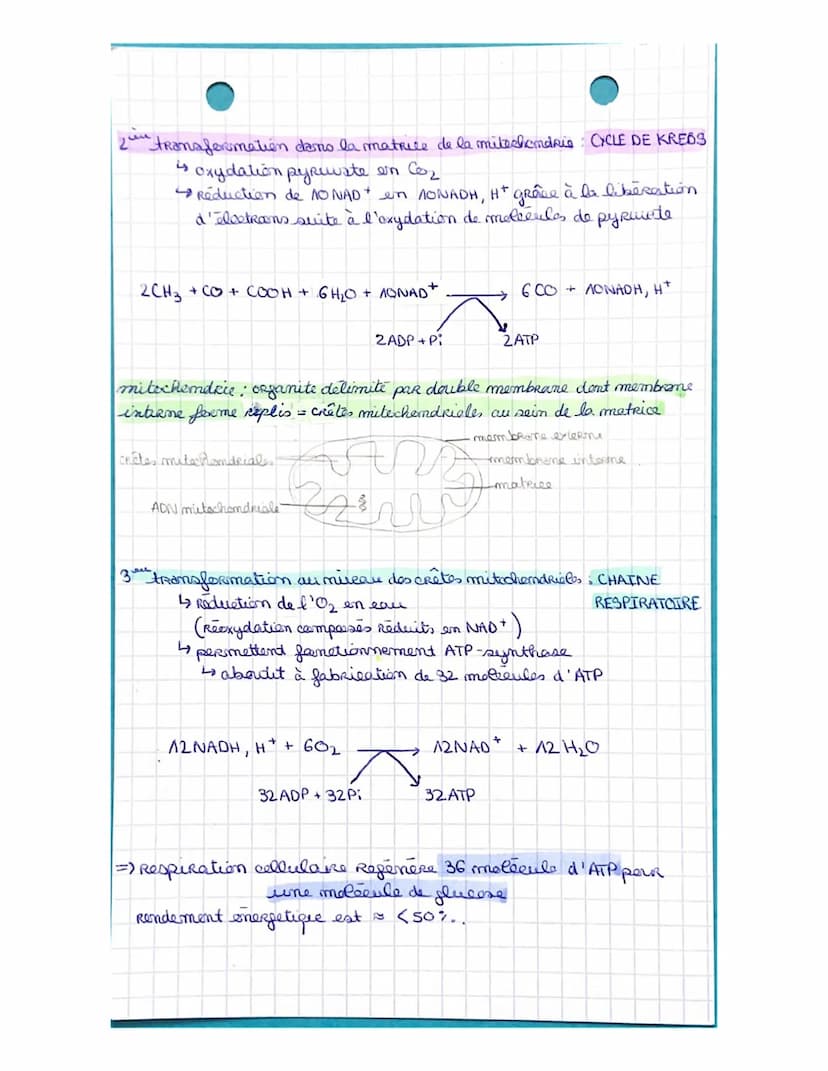 2ième transformation dans la matrice de la mitochondrie : CYCLE DE KREBS
↳ oxydation pyruvate en CO2
↳ Réduction de 10 NAD+ en 10NADH, H+ grâce à la libération
d'électrons suite à l'oxydation de molécules de pyruvate
2CH3 + CO + COOH + 6H2O + 10NAD+ → 6CO + 10NADH, H+
2ADP + Pi 2ATP
mitochondrie : organite délimité par double membrane dont membrane
interne forme replis = crêtes mitochondriales au sein de la matrice
membrane externe
crêtes mitochondriales membrane interne
matrice
ADN mitochondriale
3ième transformation au niveau des crêtes mitochondriales : CHAINE
RESPIRATOIRE
↳ Réduction de l'O2 en eau
(Réoxydation composés réduits en NAD+)
↳ permettent fonctionnement ATP-synthase
↳ aboutit à fabrication de 32 molécules d'ATP
12NADH, H+ + 6O2 → 12NAD+ + 12H2O
32ADP + 32Pi 32ATP
=> Respiration cellulaire Régénère 36 molécule d'ATP pour
une molécule de glucose
Rendement énergetique est ≈ <50%..